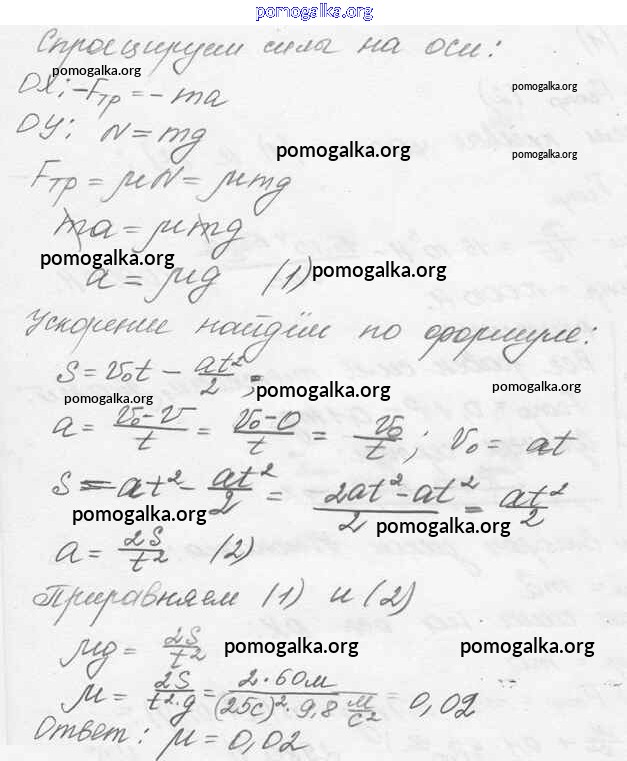 pomogalka.org
Спроецируем силы на оси:
pomogalka.org
OX: -Fтр = -ma
pomogalka.org
OY: N = mg
pomogalka.org
pomogalka.org
Fтр = μN = μmg
ma = μmg
pomogalka.org
a = μg (1)
pomogalka.org
Ускорение найдём по формуле:
S = v₀t - at²/2;
pomogalka.org
pomogalka.org
pomogalka.org
a = (v₀ - v)/t = (v₀ - 0)/t = v₀/t; v₀ = at
S = at² - at²/2 = (2at² - at²)/2 = at²/2
pomogalka.org
pomogalka.org
a = 2S/t² (2)
Приравняем (1) и (2)
μg = 2S/t²
pomogalka.org
pomogalka.org
μ = 2S/(t²·g) = 2·60м/((25с)²·9,8 м/с²) = 0,02
Ответ: μ = 0,02